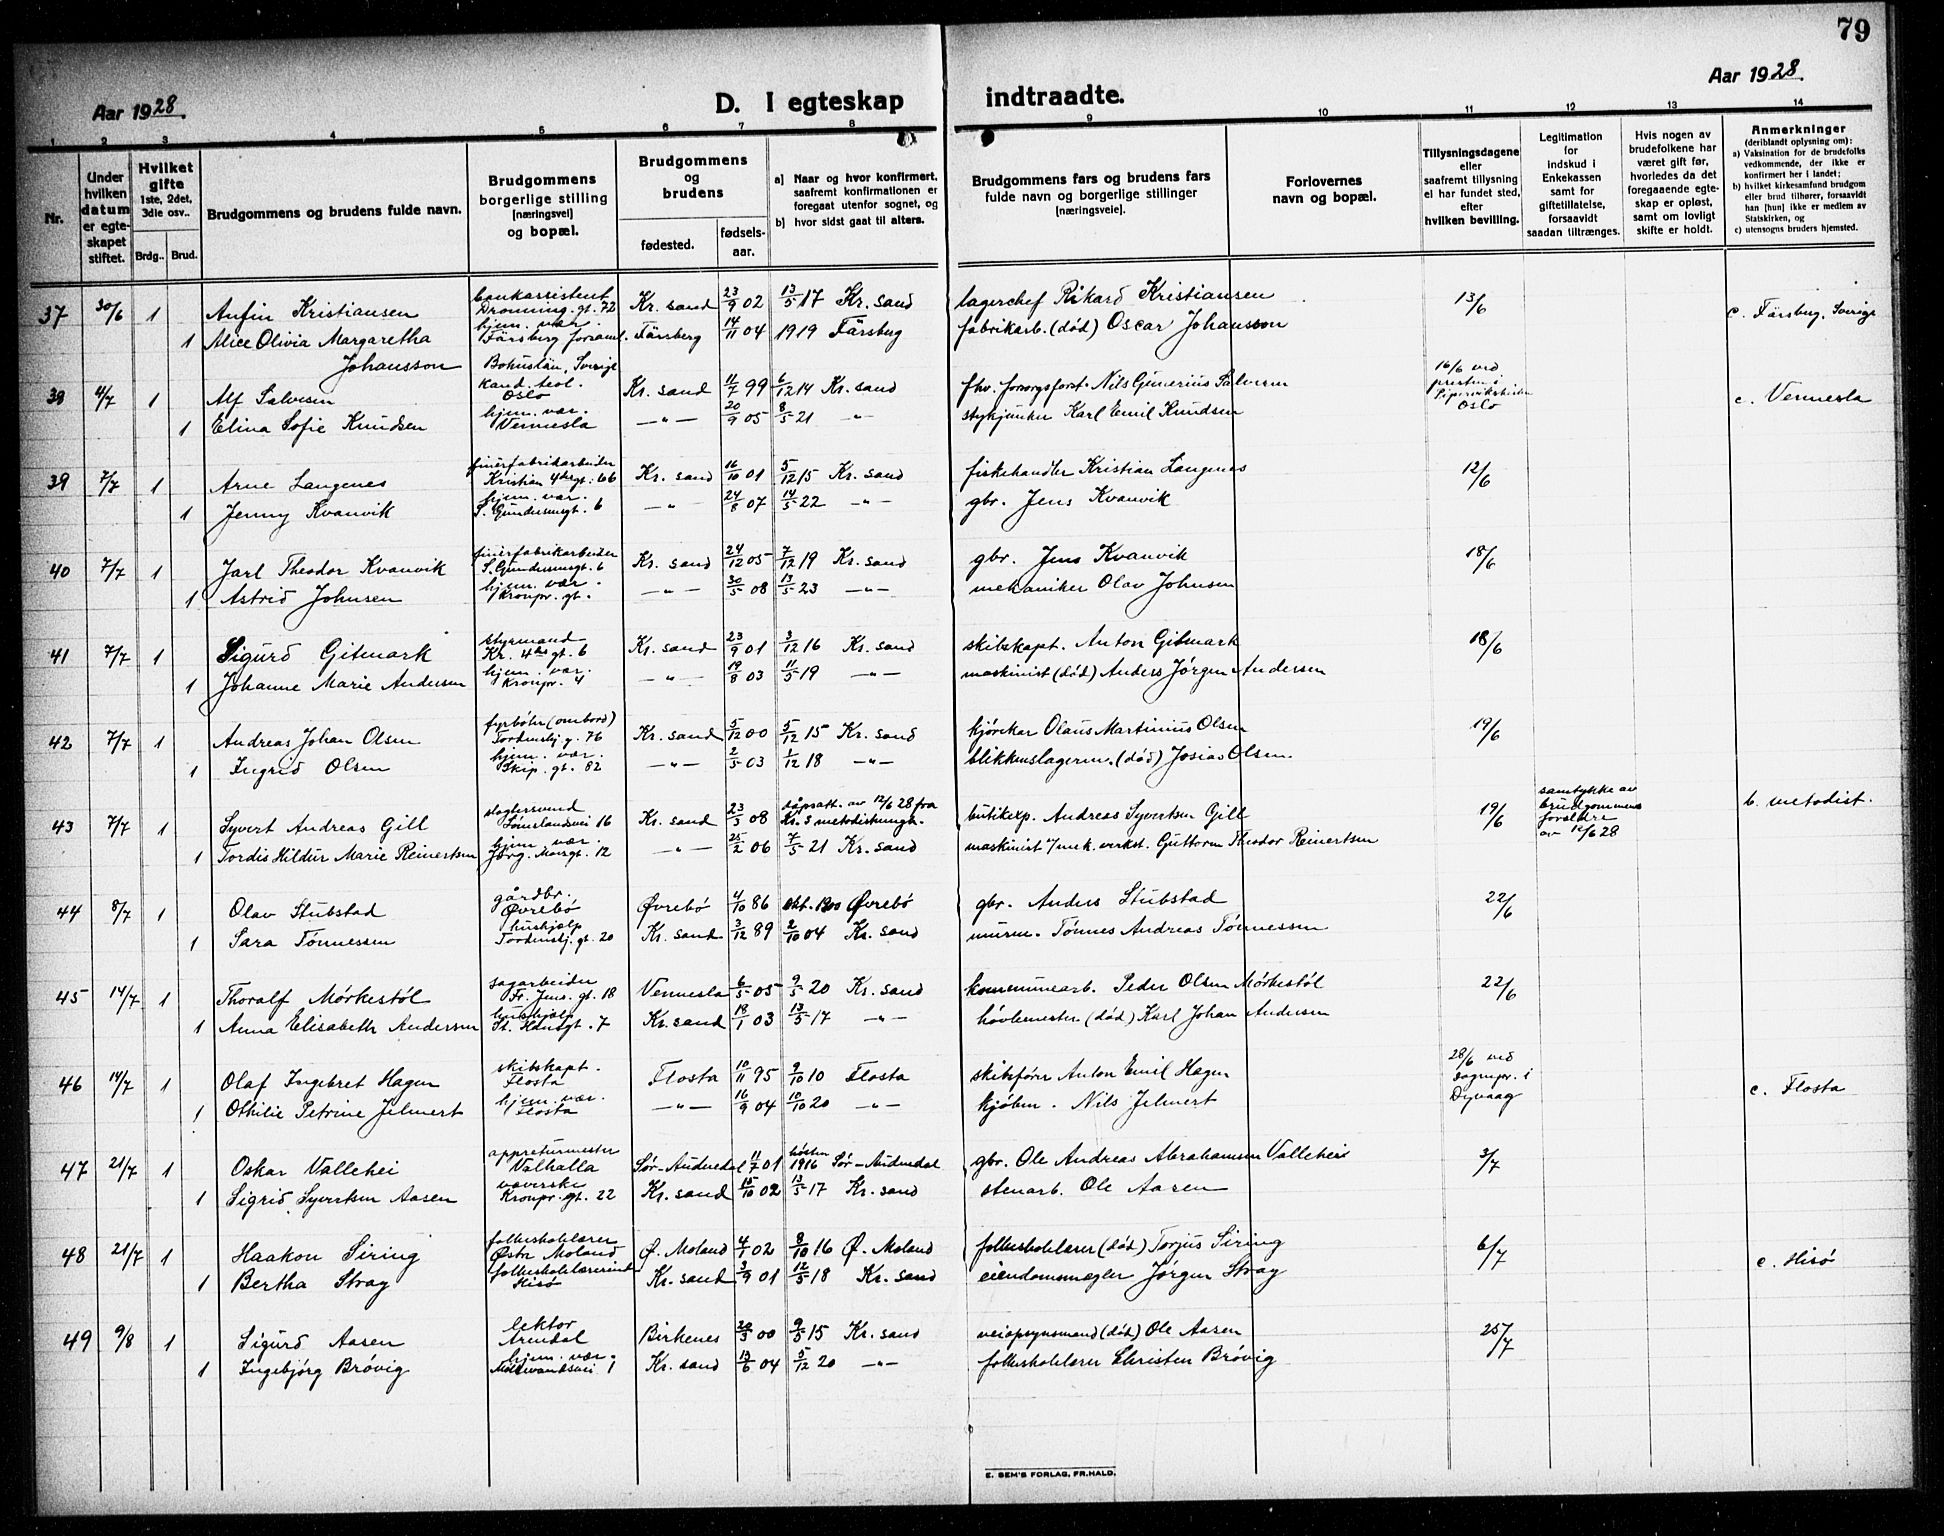 79
Aar 1928.
D. I egteskap indtraadte.
Aar 1928.
1 2 3 4 5 6 7 8 9 10 11 12 13 14
Nr.
Under hvilken datum er egteskapet stiftet.
Hvilket gifte 1ste, 2det, 3die osv..
Brdg.. Brud.
Brudgommens og brudens fulde navn.
Brudgommens borgerlige stilling [næringsvei] og bopæl.
Brudgommens og brudens
fødested. fødsels-aar.
a) Naar og hvor konfirmert, saafremt konfirmationen er foregaat utenfor sognet, og
b) hvor sidst gaat til alters.
Brudgommens fars og brudens fars fulde navn og borgerlige stillinger [næringsveie].
Forlovernes navn og bopæl.
Tillysningsdagene eller saafremt tillysning ei har fundet sted, efter hvilken bevilling.
Legitimation for indskud i Enkekassen samt for giftetillatelse, forsaavidt saadan tiltrænges.
Hvis nogen av brudefolkene har været gift før, hvorledes da det foregaaende egteskap er opløst, samt om lovligt skifte er holdt.
Anmerkninger (deriblandt oplysning om):
a) Vaksination for de brudefolks vedkommende, der ikke er konfirmert her i landet;
b) hvilket kirkesamfund brudgom eller brud tilhører, forsaavidt han [hun] ikke er medlem av Statskirken, og
c) utensogns bruders hjemsted.
37 30/6 1 Anfin Kristiansen bankassistent Dronning. gt. 72 Kr. sand 23/9 02 13/5 17 Kr. sand lagerchef Rikard Kristiansen 13/6 c. Färsberg, Sverige
1 Alice Olivia Margaretha Johansson hjem. vær. Färsberg forsaml. Bohuslän, Sverige Färsberg 14/11 04 1919 Färsberg fabrikarb. (død) Oscar Johansson
38 4/7 1 Alf Salvesen kand. teol. Oslo Kr. sand 11/7 99 6/12 14 Kr. sand fhv. forsorgsforst. Nils Gunerius Salvesen 16/6 ved presten i Pipervikskirken Oslo c. Vennesla
1 Elina Sofie Knudsen hjem. vær. Vennesla —"— 20/9 05 8/5 21 —"— stykjunker Karl Emil Knudsen
39 7/7 1 Arne Langenes finerfabrikarbeider Kristian 4des gt. 66 Kr. sand 16/10 01 5/12 15 Kr. sand fiskehandler Kristian Langenes 12/6
1 Jenny Kvanvik hjem. vær. S. Gundersensgt. 6 —"— 24/8 07 14/5 22 —"— gbr. Jens Kvanvik
40 7/7 1 Jarl Theodor Kvanvik finerfabrikarbeider S. Gundersensgt. 6 Kr. sand 24/12 05 7/12 19 Kr. sand gbr. Jens Kvanvik 18/6
1 Astrid Johnsen hjem. vær. Kronpr. gt. —"— 30/5 08 13/5 23 —"— mekaniker Olav Johnsen
41 7/7 1 Sigurd Gitmark styrmand Kr. 4des gt. 6 Kr. sand 23/9 01 3/12 16 Kr. sand skibskapt. Anton Gitmark 18/6
1 Johanne Marie Andersen hjem. vær. Kronpr. 4 —"— 19/8 03 11/5 19 —"— maskinist (død) Anders Jørgen Andersen
42 7/7 1 Andreas Johan Olsen fyrbøter (ombord) Tordenskj. g. 76 Kr. sand 5/12 00 5/12 15 Kr. sand kjørekar Olaus Martinius Olsen 19/6
1 Ingrid Olsen hjem. vær. Skip. gt. 82 —"— 2/5 03 1/12 18 —"— blikkenslagerm. (død) Josias Olsen
43 7/7 1 Syvert Andreas Gill slagtersvend Sømslandsvei 16 Kr. sand 23/3 08 dåpsatt. av 12/6 28 fra Kr. S metodistmengh. butikexp. Andreas Syvertsen Gill 19/6 samtykke av brudgommens forældre av 12/6 28 b. metodist.
1 Tordis Hildur Marie Reinertsen hjem. vær. Jørg. Moesgt. 12 —"— 25/2 06 7/5 21 Kr. sand maskinist v/mek. verkst. Guttorm Theodor Reinertsen
44 8/7 1 Olav Stubstad gårdbr. Øvrebö Øvrebö 4/10 86 okt. 1900 Øvrebö gbr. Anders Stubstad 22/6
1 Sara Tönnessen hushjelp Tordenskj. gt. 20 Kr. sand 3/12 89 2/10 04 Kr. sand murm. Tönnes Andreas Tönnessen
45 14/7 1 Thoralf Mörkestöl sagarbeider Fr. Jens. gt. 18 Vennesla 6/5 05 9/5 20 Kr. sand kommunearb. Peder Olsen Mörkestöl 22/6
1 Anna Elisabeth Andersen hushjelp St. Hansgt. 7 Kr. sand 18/1 03 13/5 17 —"— hövlemester (död) Karl Johan Andersen
46 14/7 1 Olaf Ingebret Hagen skibskapt. Flosta Flosta 10/11 95 9/10 10 Flosta skibsfører Anton Emil Hagen 28/6 ved sognepr. i Dyvaag c. Flosta
1 Othilie Petrine Jelmert hjem. vær. Flosta —"— 16/9 04 10/10 20 —"— kjöbm. Nils Jelmert
47 21/7 1 Oskar Vallehei appreturmester Valhalla Sör-Audnedal 11/7 01 hösten 1916 Sör-Audnedal gbr. Ole Andreas Abrahamsen Vallehei 3/7
1 Sigrid Syvertsen Aasen væverske Kronpr. gt. 22 Kr. sand 15/10 02 13/5 17 Kr. sand stenarb. Ole Aasen
48 21/7 1 Haakon Siring folkeskolelærer Østre Moland Ø. Moland 4/1 02 8/10 16 Ø. Moland folkeskolelærer (död) Torjus Siring 6/7 c. Hisö
1 Bertha Stray folkeskolelærerinde Hisö Kr. sand 3/9 01 12/5 18 Kr. sand eiendomsmegler Jörgen Stray
49 9/8 1 Sigurd Aasen lektor Arendal Birkenes 20/3 00 9/5 15 Kr. sand veiopsynsmand (död) Ole Aasen 25/7
1 Ingebjörg Brövig hjem. vær. 1 Kr. sand 13/6 04 5/12 20 —"— folkeskolelærer Christen Brövig
E. SEM'S FORLAG, FR.HALD.